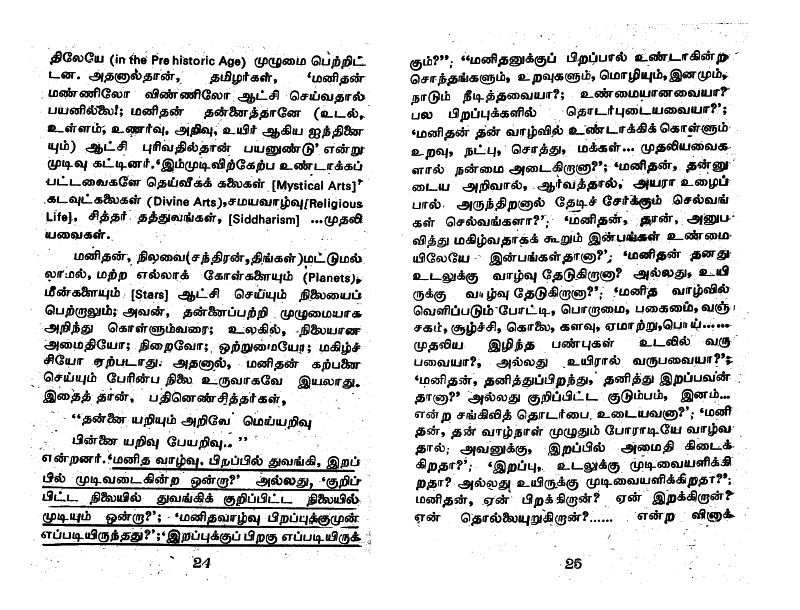 திலேயே (in the Pre historic Age) முழுமை பெற்றிட்
டன. அதனால்தான், தமிழர்கள், 'மனிதன்
மண்ணிலோ விண்ணிலோ ஆட்சி செய்வதால்
பயனில்லை!; மனிதன் தன்னைத்தானே (உடல்,
உள்ளம், உணர்வு, அறிவு, உயிர் ஆகிய ஐந்தினை
யும்) ஆட்சி புரிவதில்தான் பயனுண்டு' என்று
முடிவு கட்டினர். 'இம்முடிவிற்கேற்ப உண்டாக்கப்
பட்டவைகளே தெய்வீகக் கலைகள் [Mystical Arts]'
கடவுட்கலைகள் (Divine Arts), சமயவாழ்வு [Religious
Life], சித்தர் தத்துவங்கள், [Siddharism] ...முதலி
யவைகள்.
மனிதன், நிலவை(சந்திரன்,திங்கள்)மட்டுமல்
லாமல், மற்ற எல்லாக் கோள்களையும் (Planets),
மீன்களையும் [Stars] ஆட்சி செய்யும் நிலையைப்
பெற்றாலும்; அவன், தன்னைப்பற்றி முழுமையாக
அறிந்து கொள்ளும்வரை; உலகில், நிலையான
அமைதியோ; நிறைவோ; ஒற்றுமையோ; மகிழ்ச்
சியோ ஏற்படாது. அதனால், மனிதன் கற்பனை
செய்யும் பேரின்ப நிலை உருவாகவே இயலாது.
இதைத் தான், பதினெண்சித்தர்கள்,
"தன்னை யறியும் அறிவே மெய்யறிவு
பின்னை யறிவு பேயறிவு.. "
என்றனர். 'மனித வாழ்வு, பிறப்பில் துவங்கி, இறப்
பில் முடிவடைகின்ற ஒன்றா?' அல்லது, 'குறிப்
பிட்ட நிலையில் துவங்கிக் குறிப்பிட்ட நிலையில்
முடியும் ஒன்றா?'; 'மனிதவாழ்வு பிறப்புக்குமுன்
எப்படியிருந்தது?';'இறப்புக்குப் பிறகு எப்படியிருக்
24
கும்?"; "மனிதனுக்குப் பிறப்பால் உண்டாகின்ற
சொந்தங்களும், உறவுகளும், மொழியும்,இனமும்,
நாடும் நீடித்தவையா?; உண்மையானவையா?
பல பிறப்புக்களில் தொடர்புடையவையா?';
'மனிதன் தன் வாழ்வில் உண்டாக்கிக் கொள்ளும்
உறவு, நட்பு, சொத்து, மக்கள்... முதலியவைக
ளால் நன்மை அடைகிறானா?'; 'மனிதன், தன்னு
டைய அறிவால், ஆர்வத்தால், அயரா உழைப்
பால் அருந்திறனால் தேடிச் சேர்க்கும் செல்வங்
கள் செல்வங்களா?'; 'மனிதன், தான், அனுப
வித்து மகிழ்வதாகக் கூறும் இன்பங்கள் உண்மை
யிலேயே இன்பங்கள்தானா?'; 'மனிதன் தனது
உடலுக்கு வாழ்வு தேடுகிறானா? அல்லது, உயி
ருக்கு வாழ்வு தேடுகிறானா?'; 'மனித வாழ்வில்
வெளிப்படும் போட்டி, பொறாமை, பகைமை, வஞ்
சகம், சூழ்ச்சி, கொலை, களவு, ஏமாற்று,பொய்......
முதலிய இழிந்த பண்புகள் உடலில் வரு
பவையா?, அல்லது உயிரால் வருபவையா?';
'மனிதன், தனித்துப்பிறந்து, தனித்து இறப்பவன்
தானா?' அல்லது குறிப்பிட்ட குடும்பம், இனம்...
என்ற சங்கிலித் தொடர்பை உடையவனா?'; 'மனி
தன், தன் வாழ்நாள் முழுதும் போராடியே வாழ்வ
தால்; அவனுக்கு, இறப்பில் அமைதி கிடைக்
கிறதா?'; 'இறப்பு, உடலுக்கு முடிவையளிக்கி
றதா? அல்லது உயிருக்கு முடிவையளிக்கிறதா?';
மனிதன், ஏன் பிறக்கிறான்? ஏன் இறக்கிறான்?
ஏன் தொல்லையுறுகிறான்?...... என்ற வினாக்
25